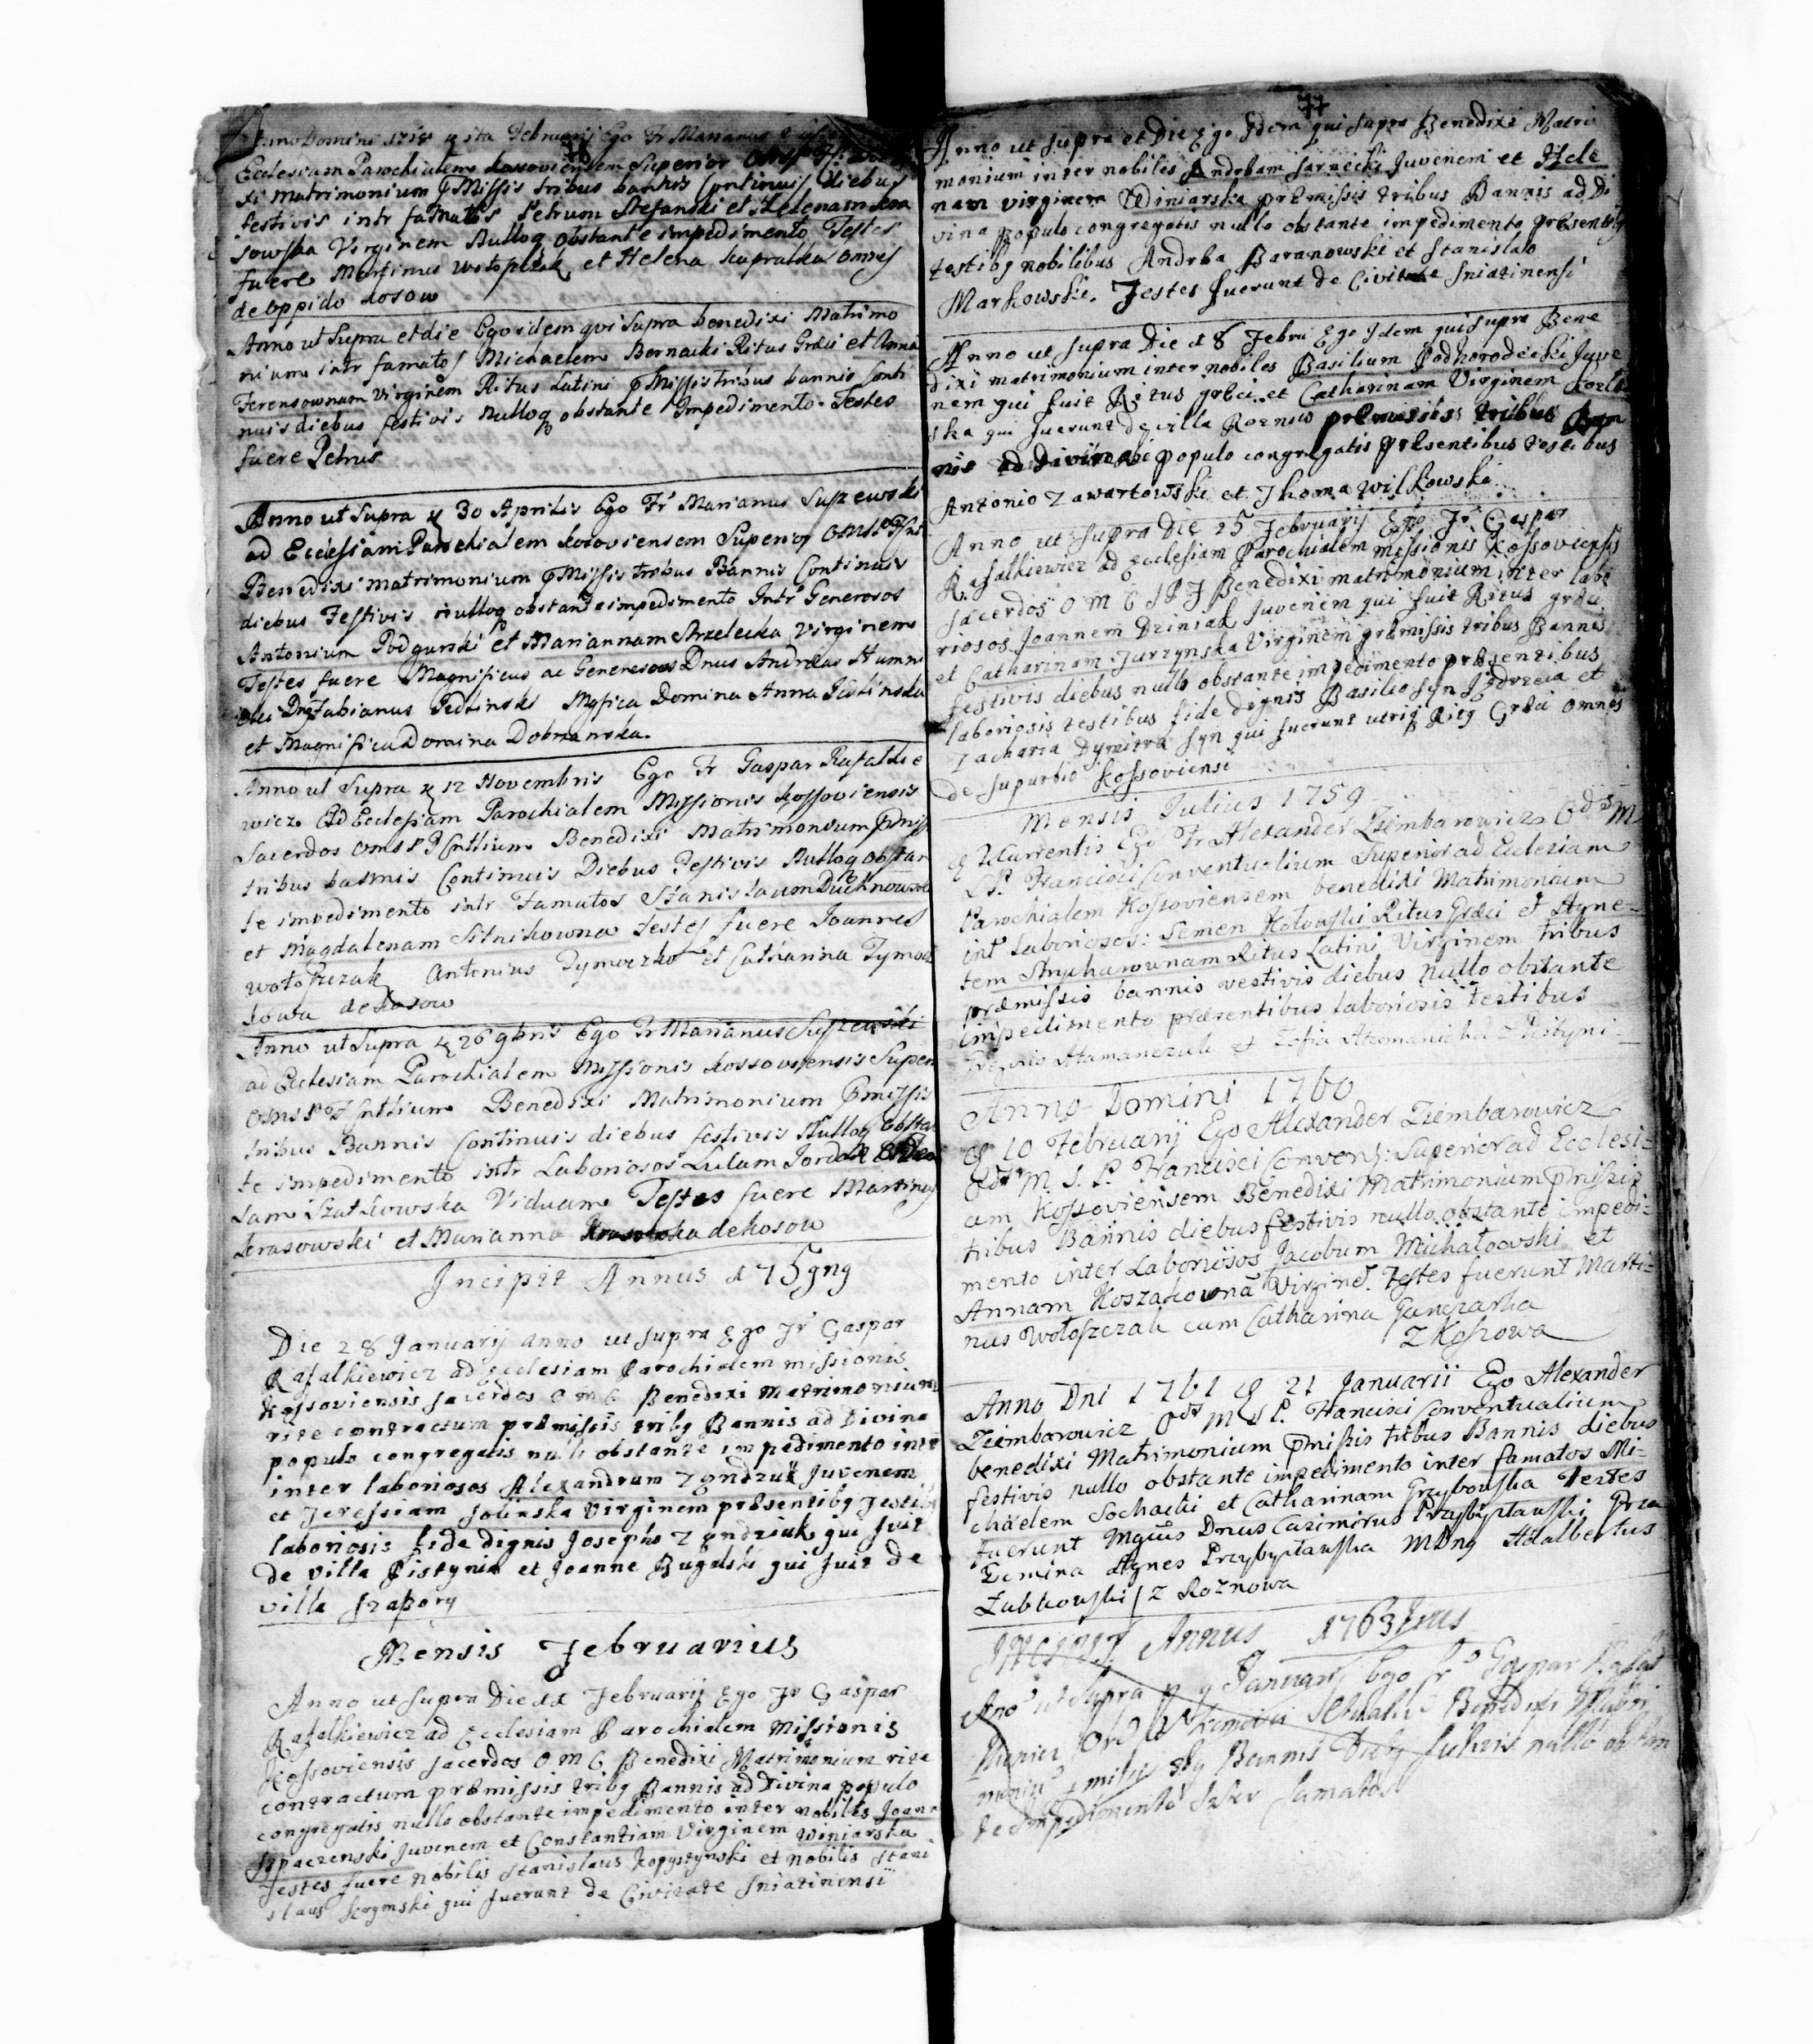 76
Anno Domini Februarij Ego Fr Marianus
Ecclesiam Parochialem Kosoviensem Superior
xi matrimonium pMissis tribus bannis continuis diebus
festivis intr famatos Petrum Stefanski et Helenam
sowska Virginem Nulloq obstante impedimento Testes
fuere Martinus Wołoszczak et Helena kapralka omnes
de oppido kosow
Anno ut Supra et die Ego idem qui Supra benedixi Matrimo
nium intr famatos Michaelem Bernacki Ritus Græci et Anna
Ferensownam virginem Ritus Latini pMissis tribus bannis Conti
nuis diebus festivis Nulloq obstante Impedimento. Testes
fuere Petrus
Anno ut Supra 30 Aprilis Ego Fr Marianus Suszewski
ad Ecclesiam Parochialem kosoviensem Superior
Benedixi matrimonium pMissis tribus Bannis Continuis
diebus Festivis nulloq obstante impedimento Intr Generosos
Antonium Podgurski et Mariannam Strzelecka Virginem
Testes fuere Magnificus ac Generosus Dnus Andreas Humni
cki Dnq Fabianus Jedlinski Mgfica Domina Anna Jedlinska
et Magnifica Domina Dobrzanska.
Anno ut Supra 12 Novembris Ego Fr Gaspar Rafalkie
wicz Ad Ecclesiam Parochialem Missionis kossoviensis
Sacerdos Benedixi Matrimonium pMiss
tribus bannis Continuis Diebus Festivis Nulloq obstan
te impedimento intr Famatos Stanislaum
et Magdalenam Sitnikowna Testes fuere Joannes
Wołoszczak Antonius Tymoczko et Catharina Tymocz
kowa de kosow
Anno ut Supra 26 9bris Ego Fr Marianus Suszewski
ad Ecclesiam Parochialem Missionis kossoviensis Superi
Benedixi Matrimonium Pmissis
tribus Bannis Continuis diebus festivis Nulloq obsta
te impedimento intr Laboriosos Lulam
Szatkowska Viduam Testes fuere Martinus
kerasowski et Marianna de kosow
Incipit Annus 1759nq
Die 28 Januarij anno ut supra Ego Fr Gaspar
Rafalkiewicz ad Ecclesiam Parochialem missionis
kossoviensis sacerdos O M C Benedixi Matrimonium
rite contractum præmissis tribq Bannis ad Divina
populo congregatis nullo obstante impedimento inte
inter laboriosos Alexandrum Zyndzuk Juvenem
et Teressiam Solinska Virginem præsentibq Testib
laboriosis fide dignis Josepho Zyndziuk qui fuit
de villa Pistynia et Joanne Bugalski qui fuit de
villa Szapory
Mensis Februarius
Anno ut supra Die 11 Februarij Ego Fr Gaspar
Rafalkiewicz ad Ecclesiam Parochialem Missionis
Kossoviensis sacerdos O M C Benedixi Matrimonium rite
contractum præmissis tribq Bannis ad Divina populo
congregatis nullo obstante impedimento inter nobiles Joann
Szpaczenski Juvenem et Constantiam Virginem Winiarska
Testes fuere nobilis Stanislaus Kopystynski et nobilis Stani
slaus qui fuerunt de Civitate Sniatinensi
77
Anno ut supra et Die Ego Idem qui supra Benedixi Matri
monium inter nobiles Andream Sarnecki Juvenem et Hele
nam virginem Winiarska præmissis tribus Bannis ad Di
vina populo congregatis nullo obstante impedimento præsentibq
testibq nobilibus Andrea Baranowski et Stanislao
Markowski. Testes fuerunt de Civitate Sniatinensi
Anno ut supra Die 18 Febru Ego Idem qui supra Bene
dixi matrimonium inter nobiles Basilium Podhorodecki Juve
nem qui fuit Ritus græci et Catharinam Virginem
ska qui fuerunt de villa Roznow præmissis tribus Ban
nis ad Divina populo congregatis præsentibus testibus
Antonio Zawartowski et Thoma Wilkowski
Anno ut supra Die 25 Februarij Ego Fr Gaspar
Rafalkiewicz ad Ecclesiam Parochialem missionis Kossoviensis
sacerdos O M C Benedixi matrimonium inter labo
riosos Joannem Dziniak Juvenem qui fuit Ritus græci
et Catharinam Jurzynska Virginem præmissis tribus Bannis
festivis diebus nullo obstante impedimento præsentibus
laboriosis testibus fide dignis Basilio syn Jędrzeia et
Zacharia Dymitra syn qui fuerunt utriq Ritq Græci omnes
de supurbio Kossoviensi
Mensis Julius 1759
Currentis Ego Fr Alexander Ziembarowicz Ord M
S P. Francisci Conventualium Superior ad Ecclesiam
Parochialem Kossoviensem benedixi Matrimonium
int Laboriosos: Semen Kotowski Ritus Græci et Agne-
tem Strycharownam Ritus Latini Virginem tribus
præmissis bannis vestivis diebus nullo obstante
impedimento præsentibus laboriosis testibus
Atamanczuk et Zofia Atamanicka
Anno Domini 1760
10 Februarij Ego Alexander Ziembarowicz
Ord M. S. P. Francisci Convent: Superior ad Ecclesi-
am Kossoviensem Benedixi Matrimonium Pmissis
tribus Bannis diebus festivis nullo obstante impedi-
mento inter Laboriosos Jacobum Michałowski et
Annam Koszakowną Virgine. Testes fuerunt Marti-
nus Wołoszczak cum Catharina Ganczarka
Z Kossowa
Anno Dni 1761 21 Januarii Ego Alexander
Ziembarowicz Ord M S P. Francisci Conventualium
benedixi Matrimonium Pmissis tribus Bannis diebus
festivis nullo obstante impedimento inter famatos Mi-
chaelem Sochacki et Catharinam Grzybowska Testes
fuerunt Mgcus Dnus Casimirus Przybyłtawski Prza
Domina Agnes Przybyłtawska MDnq Adalbertus
Zubkowski / Z Roznowa
Incipit Annus 1763
Ano ut Supra 9 Januarij Ego Fr Gaspar Rafał
Ord Benedixi Matri
monium pmissis Bannis nullo obstan
te Impedimento Inter famatos